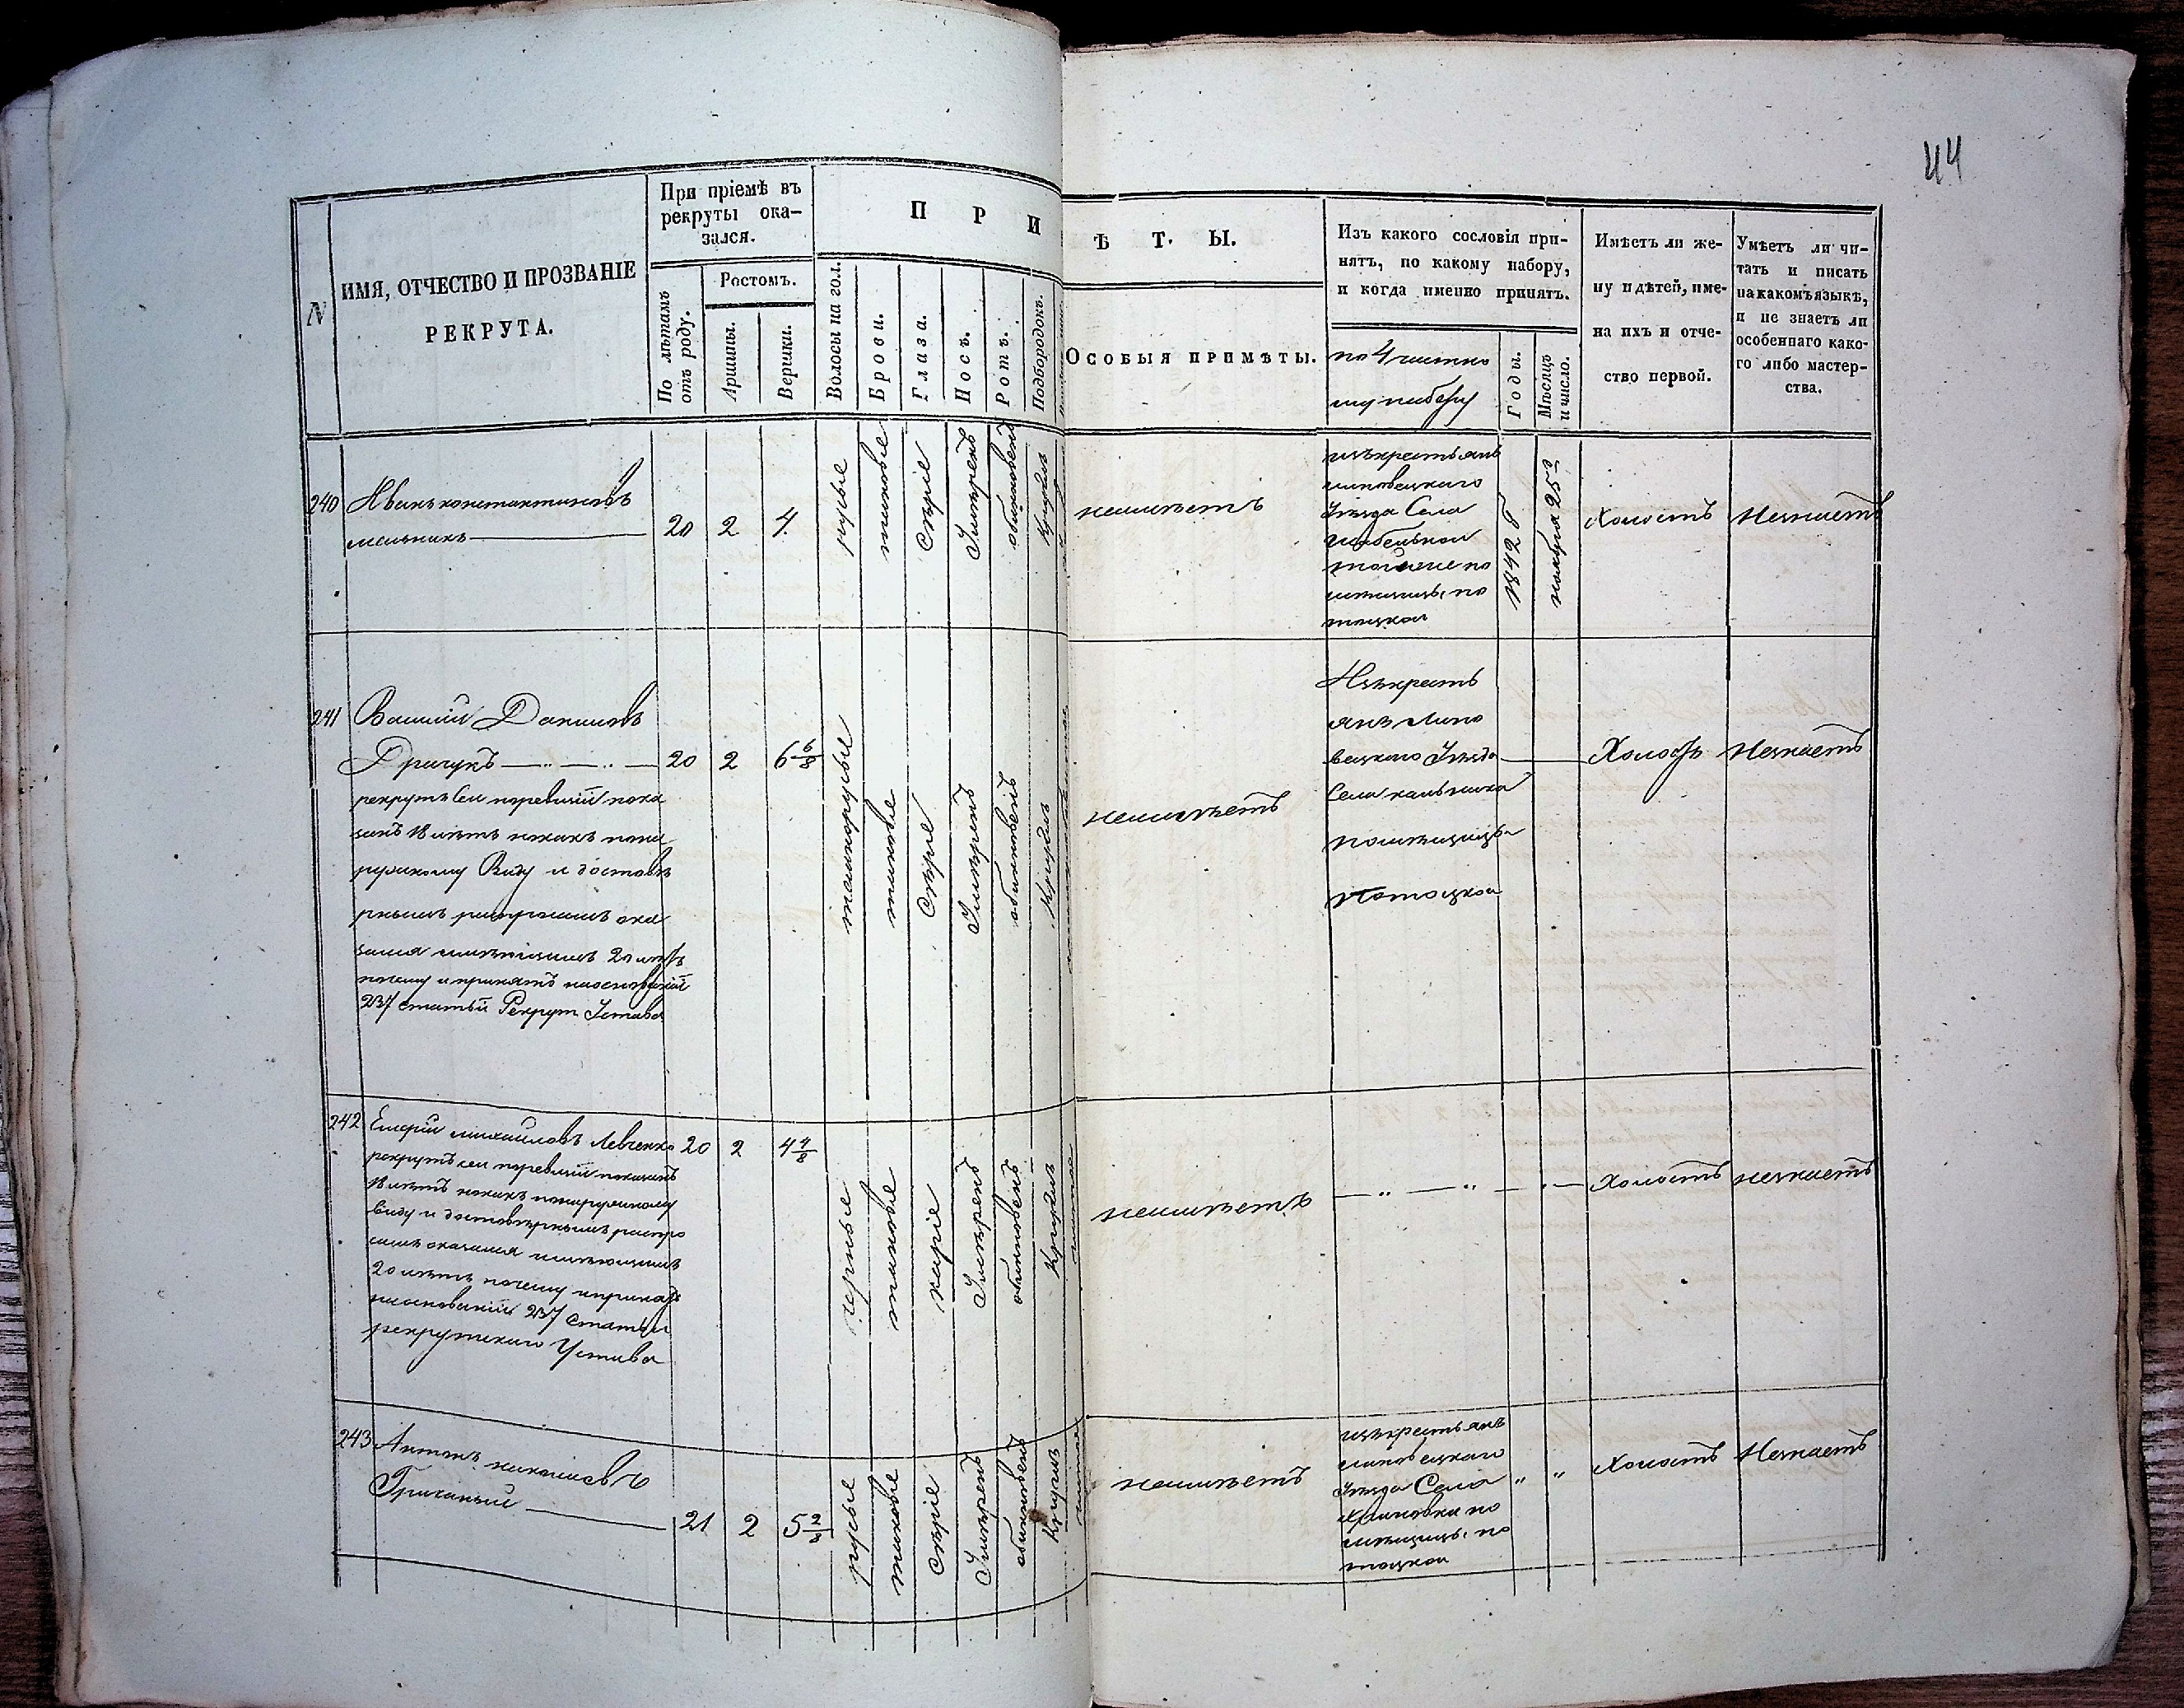 44
N
ИМЯ, ОТЧЕСТВО И ПРОЗВАНІЕ
РЕКРУТА.
При пріемѣ въ
рекруты ока-
зался.
По лѣтамъ
отъ роду.
Ростомъ.
Аршины.
Вершки.
П Р И
Волосы на гол.
Брови.
Глаза.
Носъ.
Ротъ.
Подбородокъ.
Ѣ Т. Ы.
Особыя примѣты.
Изъ какого сословія при-
нятъ, по какому набору,
и когда именно принятъ.
по 4 частно
му набору
Годы.
Мѣсяцъ
и число.
Имѣетъ ли же-
ну и дѣтей, име-
на ихъ и отче-
ство первой.
Умѣетъ ли чи-
тать и писать
на какомъ языкѣ,
и не знаетъ ли
особеннаго како-
го либо мастер-
ства.
240
Иванъ константиновъ
мельникъ
20
2
4
русые
таковые
Сѣріе
Умѣренъ
обыкновенъ
Круглъ
неимѣетъ
изъкрестьянъ
липовецкаго
Уѣзда Села
помѣщицы по
тоцкой
1842 г
ноября 25
Холостъ
Незнаетъ
241
Василий Даниловъ
Драчукъ
рекрутъ сей поревизіи пока
занъ 18 лѣтъ нокакъ пона
ружному Виду и достовѣ
рнымъ разпросамъ ока
зался имѣющимъ 20 лѣтъ
почему и принятъ наоснованіи
237 статьи Рекрут Устава
20
2
6 6/8
темнорусые
таковые
Сѣріе
Умѣренъ
обыкновенъ
Круглъ
неимѣетъ
Изъкресть
янъ Липо
вецкаго Уѣзда
Села кальника
помѣщицы
Потоцкой
Холостъ
Незнаетъ
242
михайловъ Левченко
рекрутъ сей поревизіи показанъ
18 лѣтъ нокакъ понаружному
виду и достовѣрнымъ распро
самъ оказался имѣющимъ
20 лѣтъ почему и принятъ
наоснованіи 237 статьи
рекрутскаго Устава
20
2
4 4/8
черные
таковые
каріе
Умѣренъ
обыкновенъ
Круглъ
неимѣетъ
— „ — „ —
Холостъ
незнаетъ
243
Антонъ николаевъ
21
2
5 2/8
русые
таковые
Сѣріе
Умѣренъ
обыкновенъ
Круглъ
неимѣетъ
изъкрестьянъ
липовецкаго
Уѣзда Села
помѣщицы по
тоцкой
„ „
Холостъ
Незнаетъ